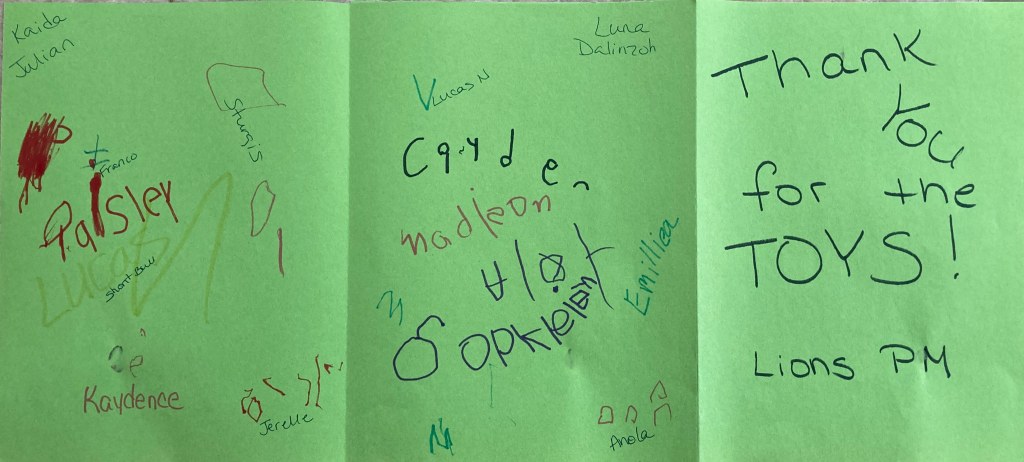 Kaida
Julian
Sturgis
Franco
Paisley
Lucas
Short-Bull
Kaydence
Jerelle
Luna
Dalinzoh
Lucas N
Cayden
nadleon
Emilliea
Anola
Thank
You
for the
TOYS!
Lions PM